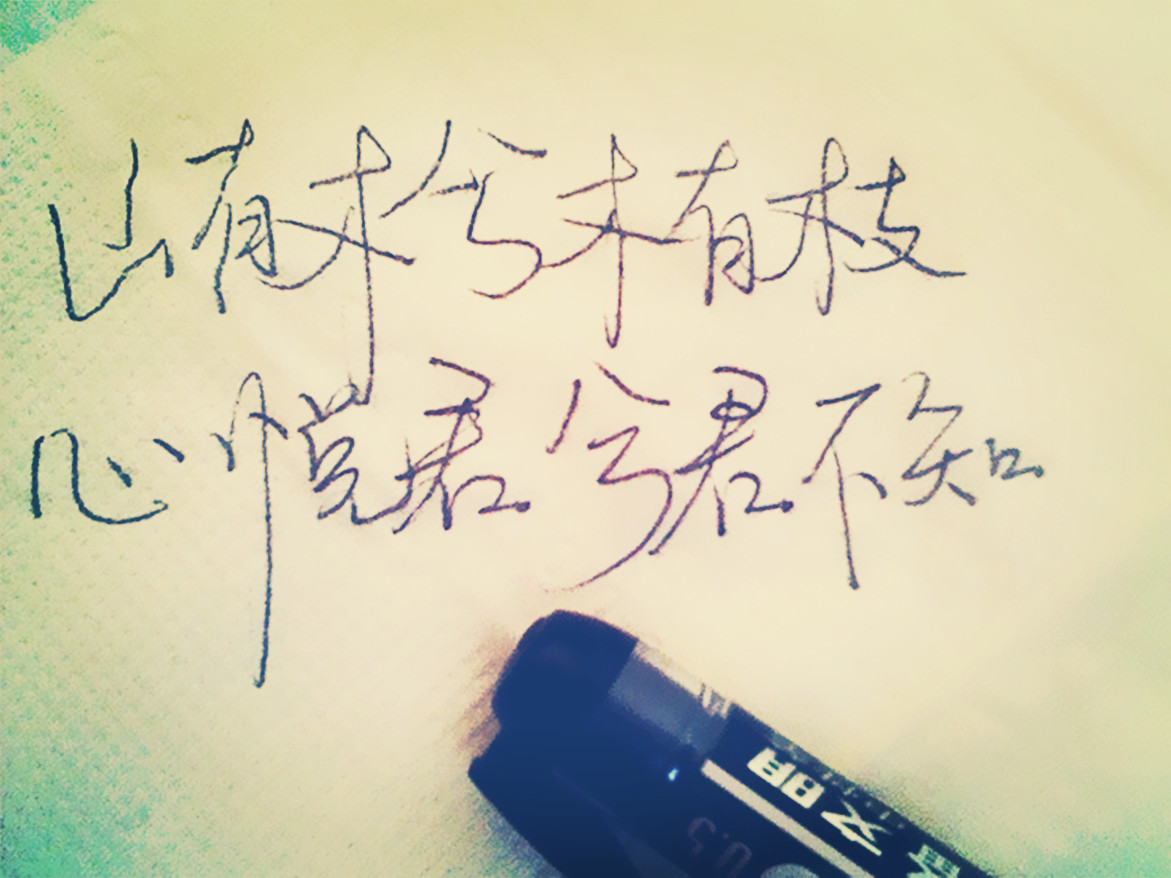 山有木兮木有枝
心悦君兮君不知
文明
0.5